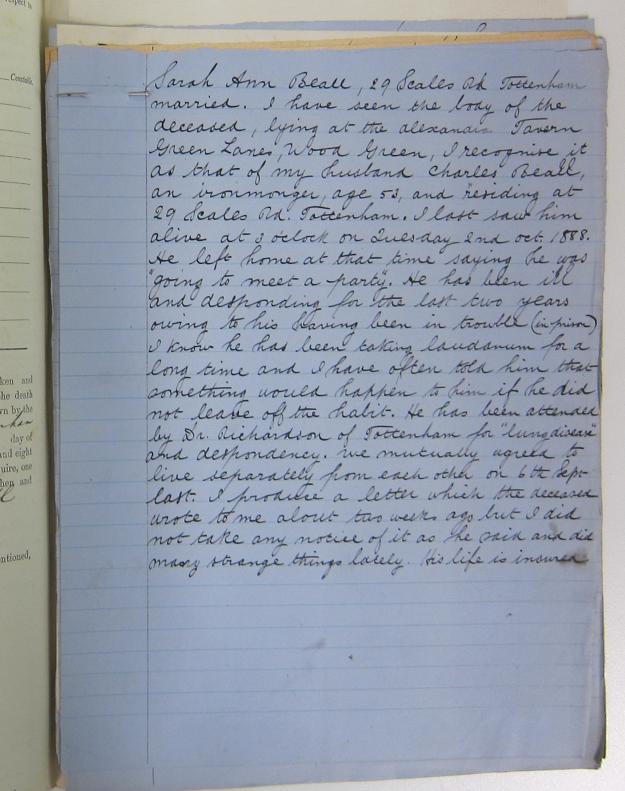 respect to
Constable.
ken and
he death
wn by the
day of
and eight
quire, one
hen and
entioned,
Sarah Ann Beall, 29 Scales Rd Tottenham
married. I have seen the body of the
deceased, lying at the alexandra Tavern
Green Lanes, Wood Green, I recognise it
as that of my husband Charles Beall,
an ironmonger, age 53, and residing at
29 Scales Rd. Tottenham. I last saw him
alive at 3 o'clock on Tuesday 2nd oct. 1888.
He left home at that time saying he was
"going to meet a party". He has been ill
and desponding for the last two years
owing to his having been in trouble (in prison)
I know he has been taking laudanum for a
long time and I have often told him that
something would happen to him if he did
not leave off the habit. He has been attended
by Dr. Richardson of Tottenham for "lung disease"
and despondency. We mutually agreed to
live separately from each other on 6th Sept
last. I produce a letter which the deceased
wrote to me about two weeks ago but I did
not take any notice of it as he said and did
many strange things lately. His life is insured